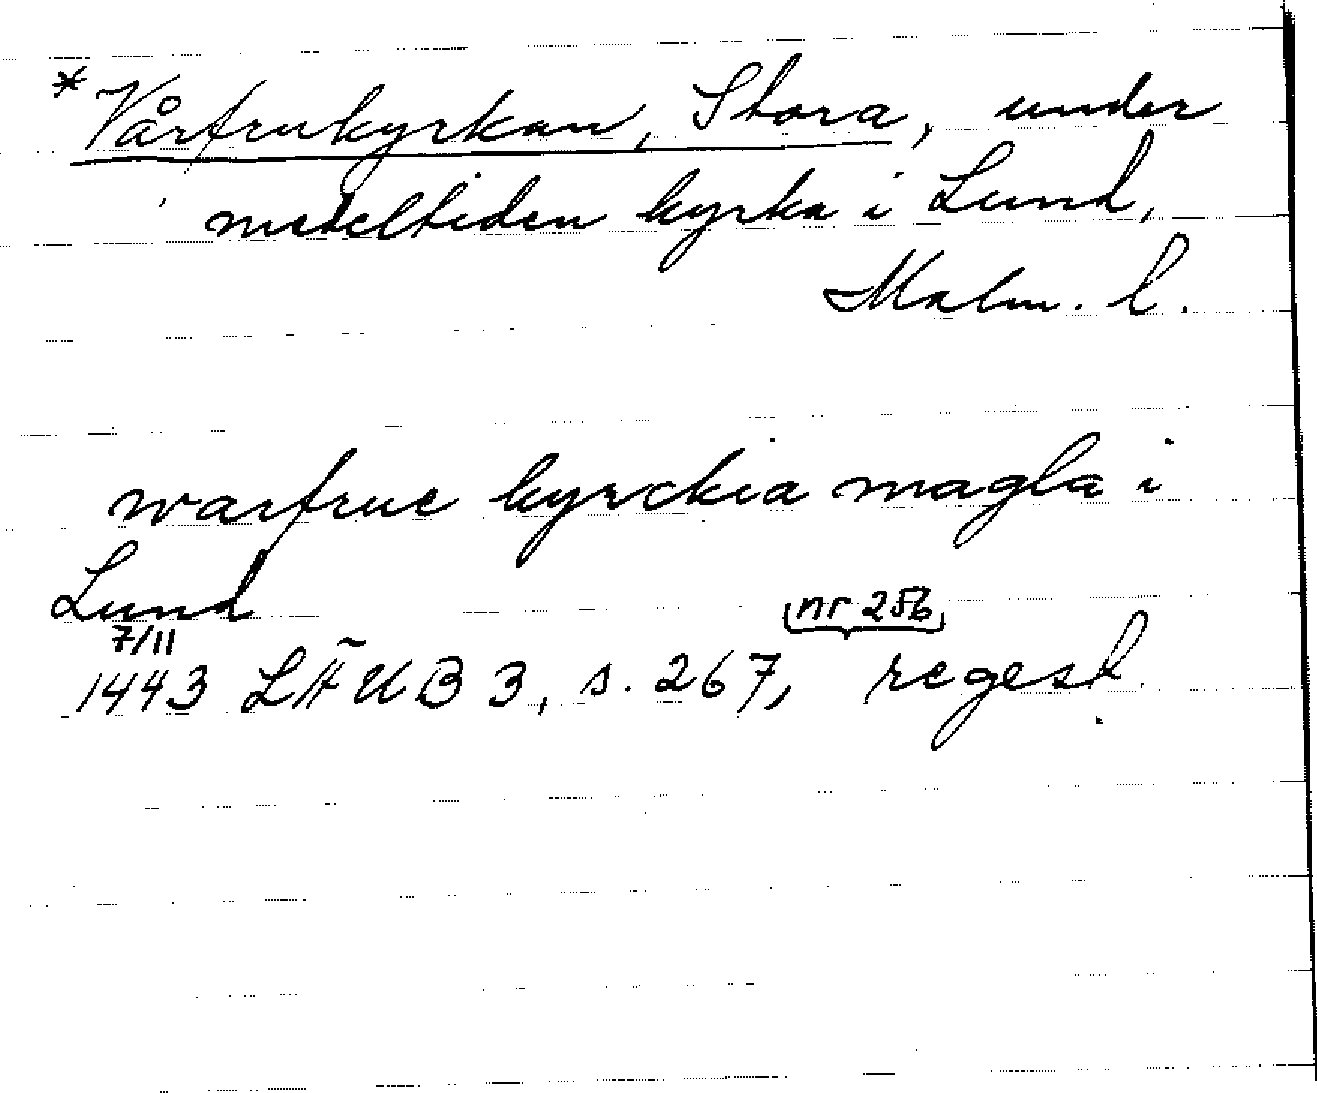 *Vårfrukyrkan, Stora, under
medeltiden kyrka i Lund,
Malm. l.
warfrue kyrckia magla i
Lund
7/11 nr 256
1443 LÄUB 3, s. 267, regest.